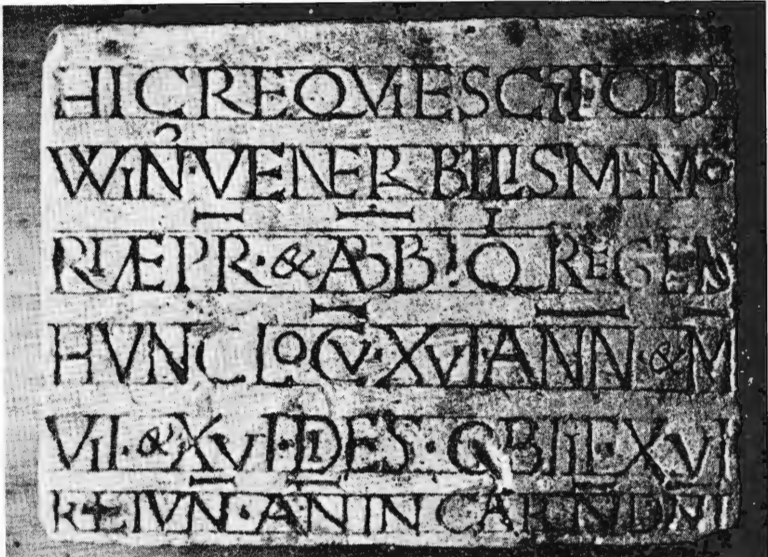 HIC REQVIESCIT FOD
WIN̄ · VENERBILIS MEMO
RIÆ PR̄ · & ABB̄ · Q̄ REGEN̄
HVNC LOCV̄ · XVI · ANN̄ · & M̄
VII · & XVI · DES · OBIIT XVI
KL IVN̄ · AN̄ INCARN̄ DN̄I